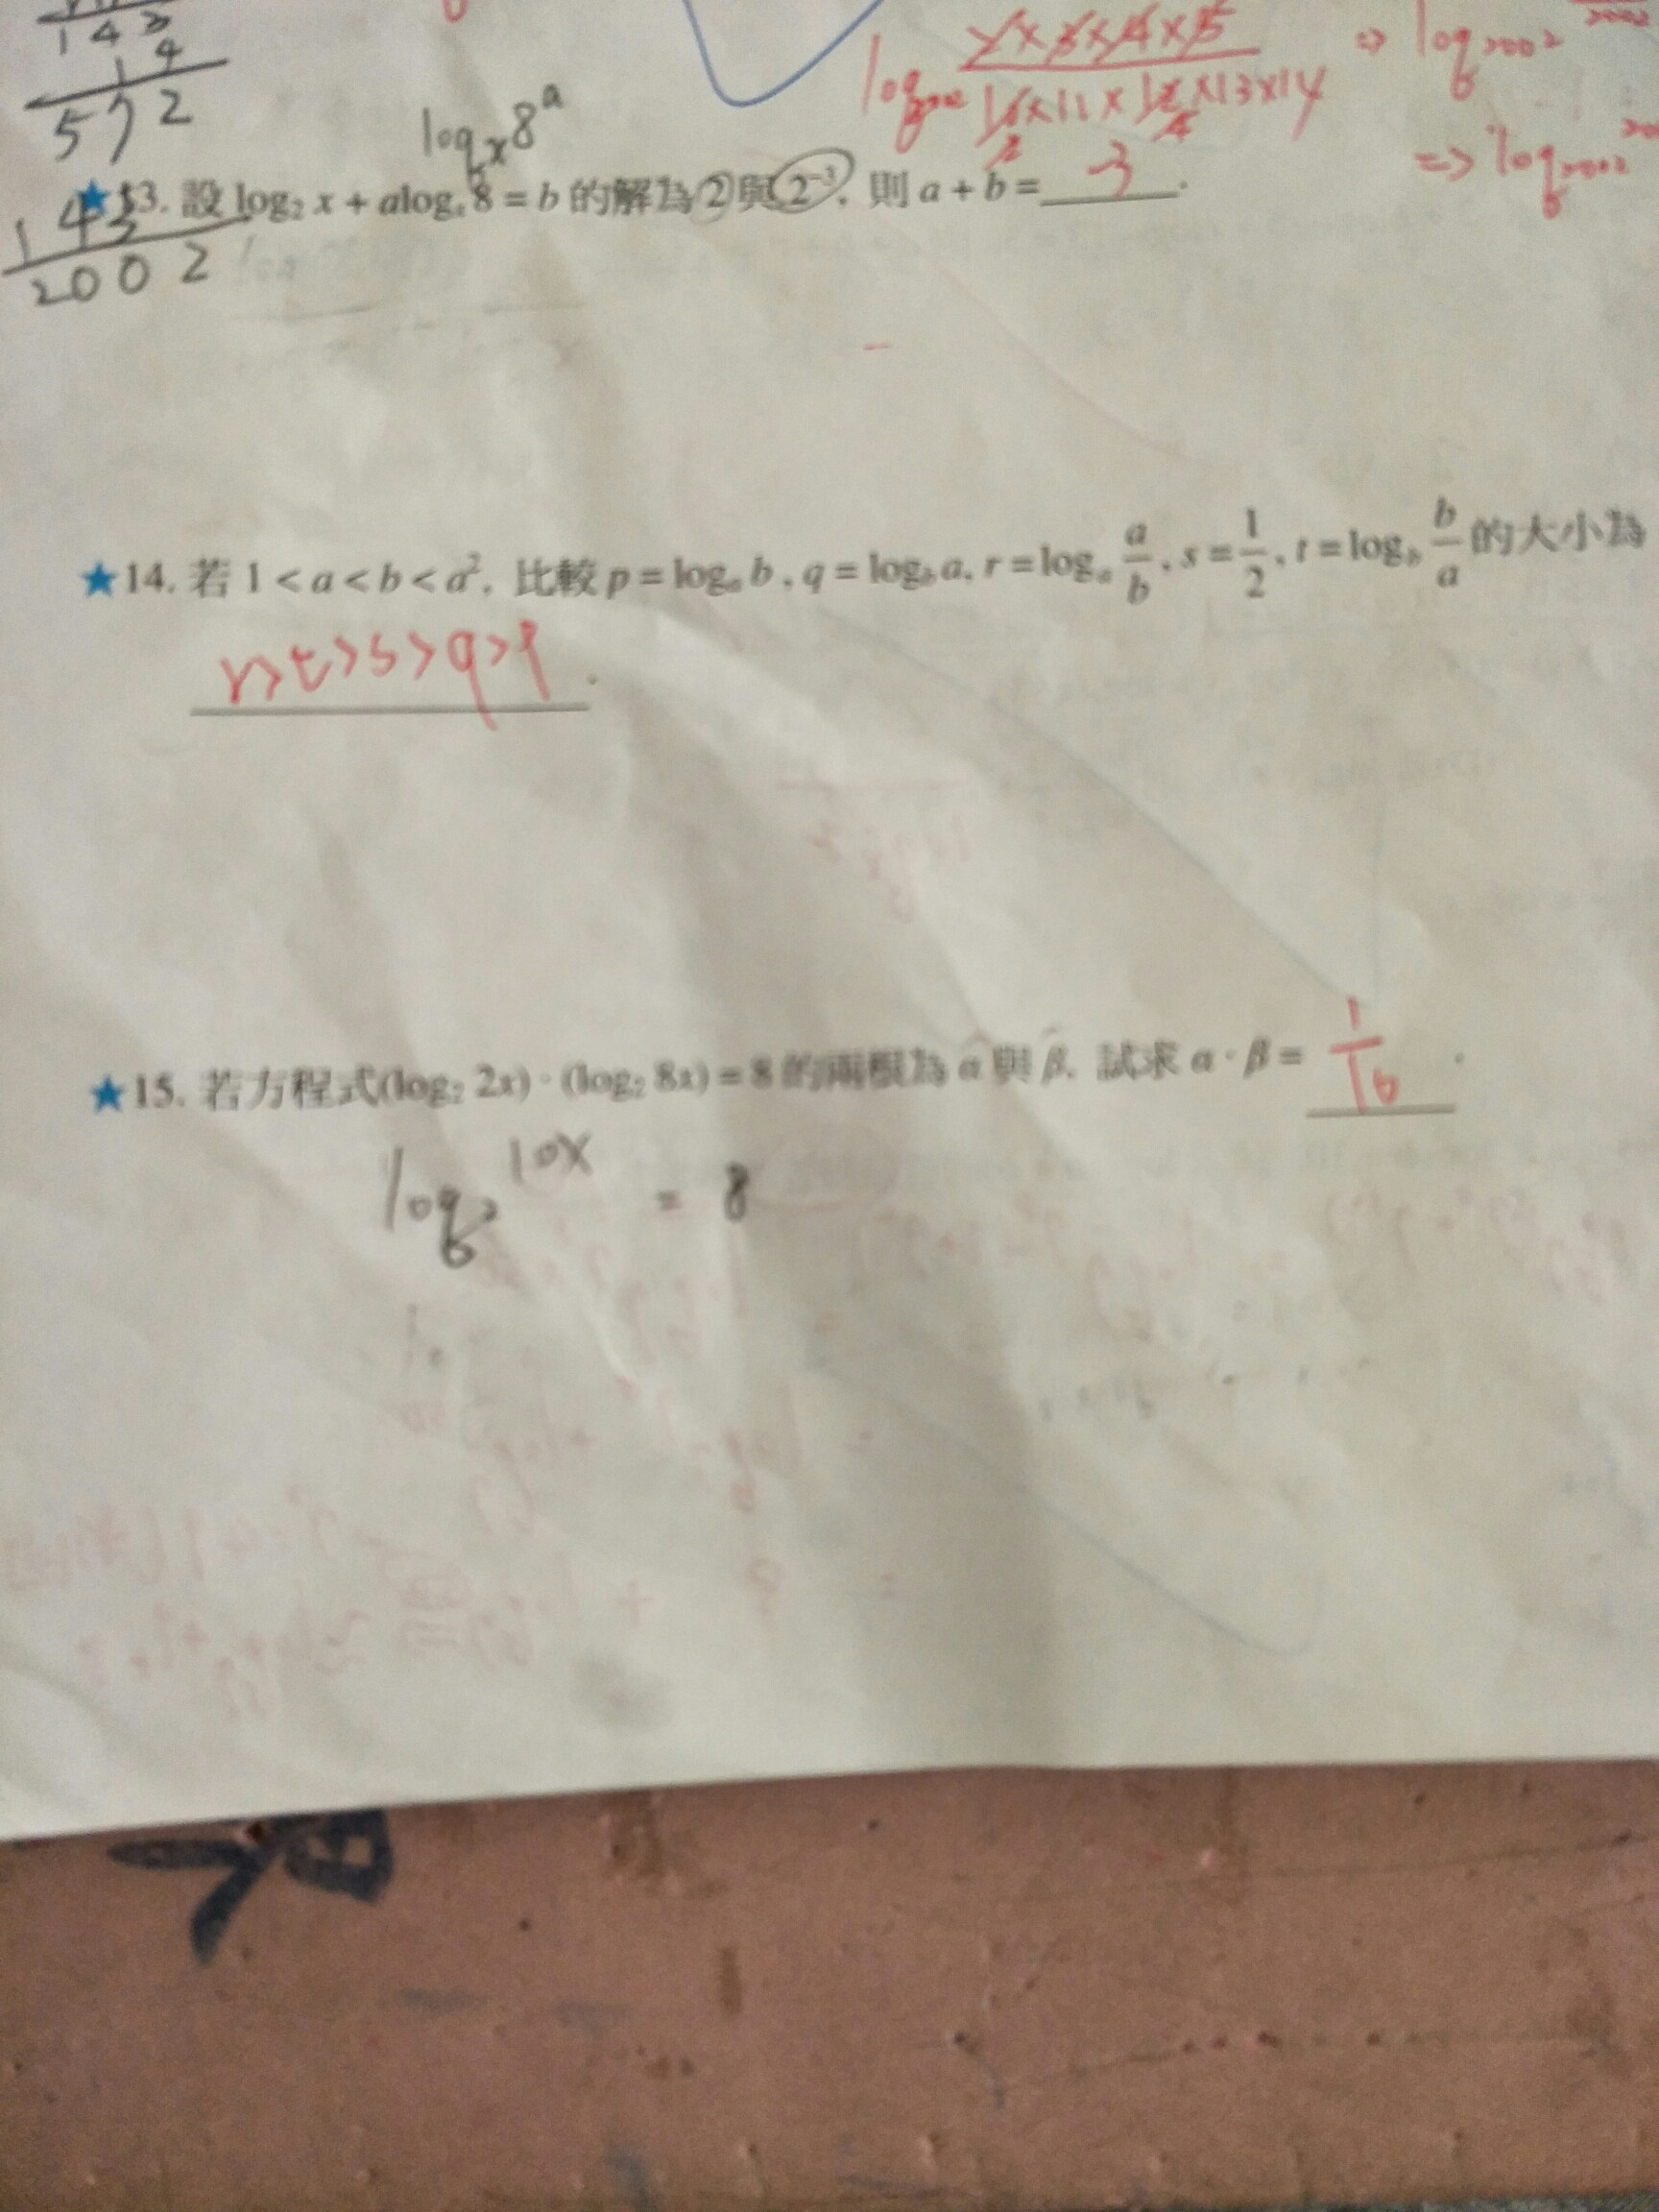 143
14
572
log₂₀₀₂ 2×3×4×5 / 10×11×12×13×14 ⇒ log₂₀₀₂
2 4
⇒ log₂₀₀₂
logₓ8ᵃ
★13. 設 log₂ x + alogₓ 8 = b 的解為 2 與 2⁻³, 則 a + b = -3.
143
2002
★14. 若 1 < a < b < a², 比較 p = logₐ b, q = log_b a, r = logₐ a/b, s = 1/2, t = log_b b/a 的大小為
r>t>s>q>p.
★15. 若方程式(log₂ 2x)·(log₂ 8x) = 8 的兩根為 α 與 β, 試求 α·β = 1/16.
log₂ 10x = 8